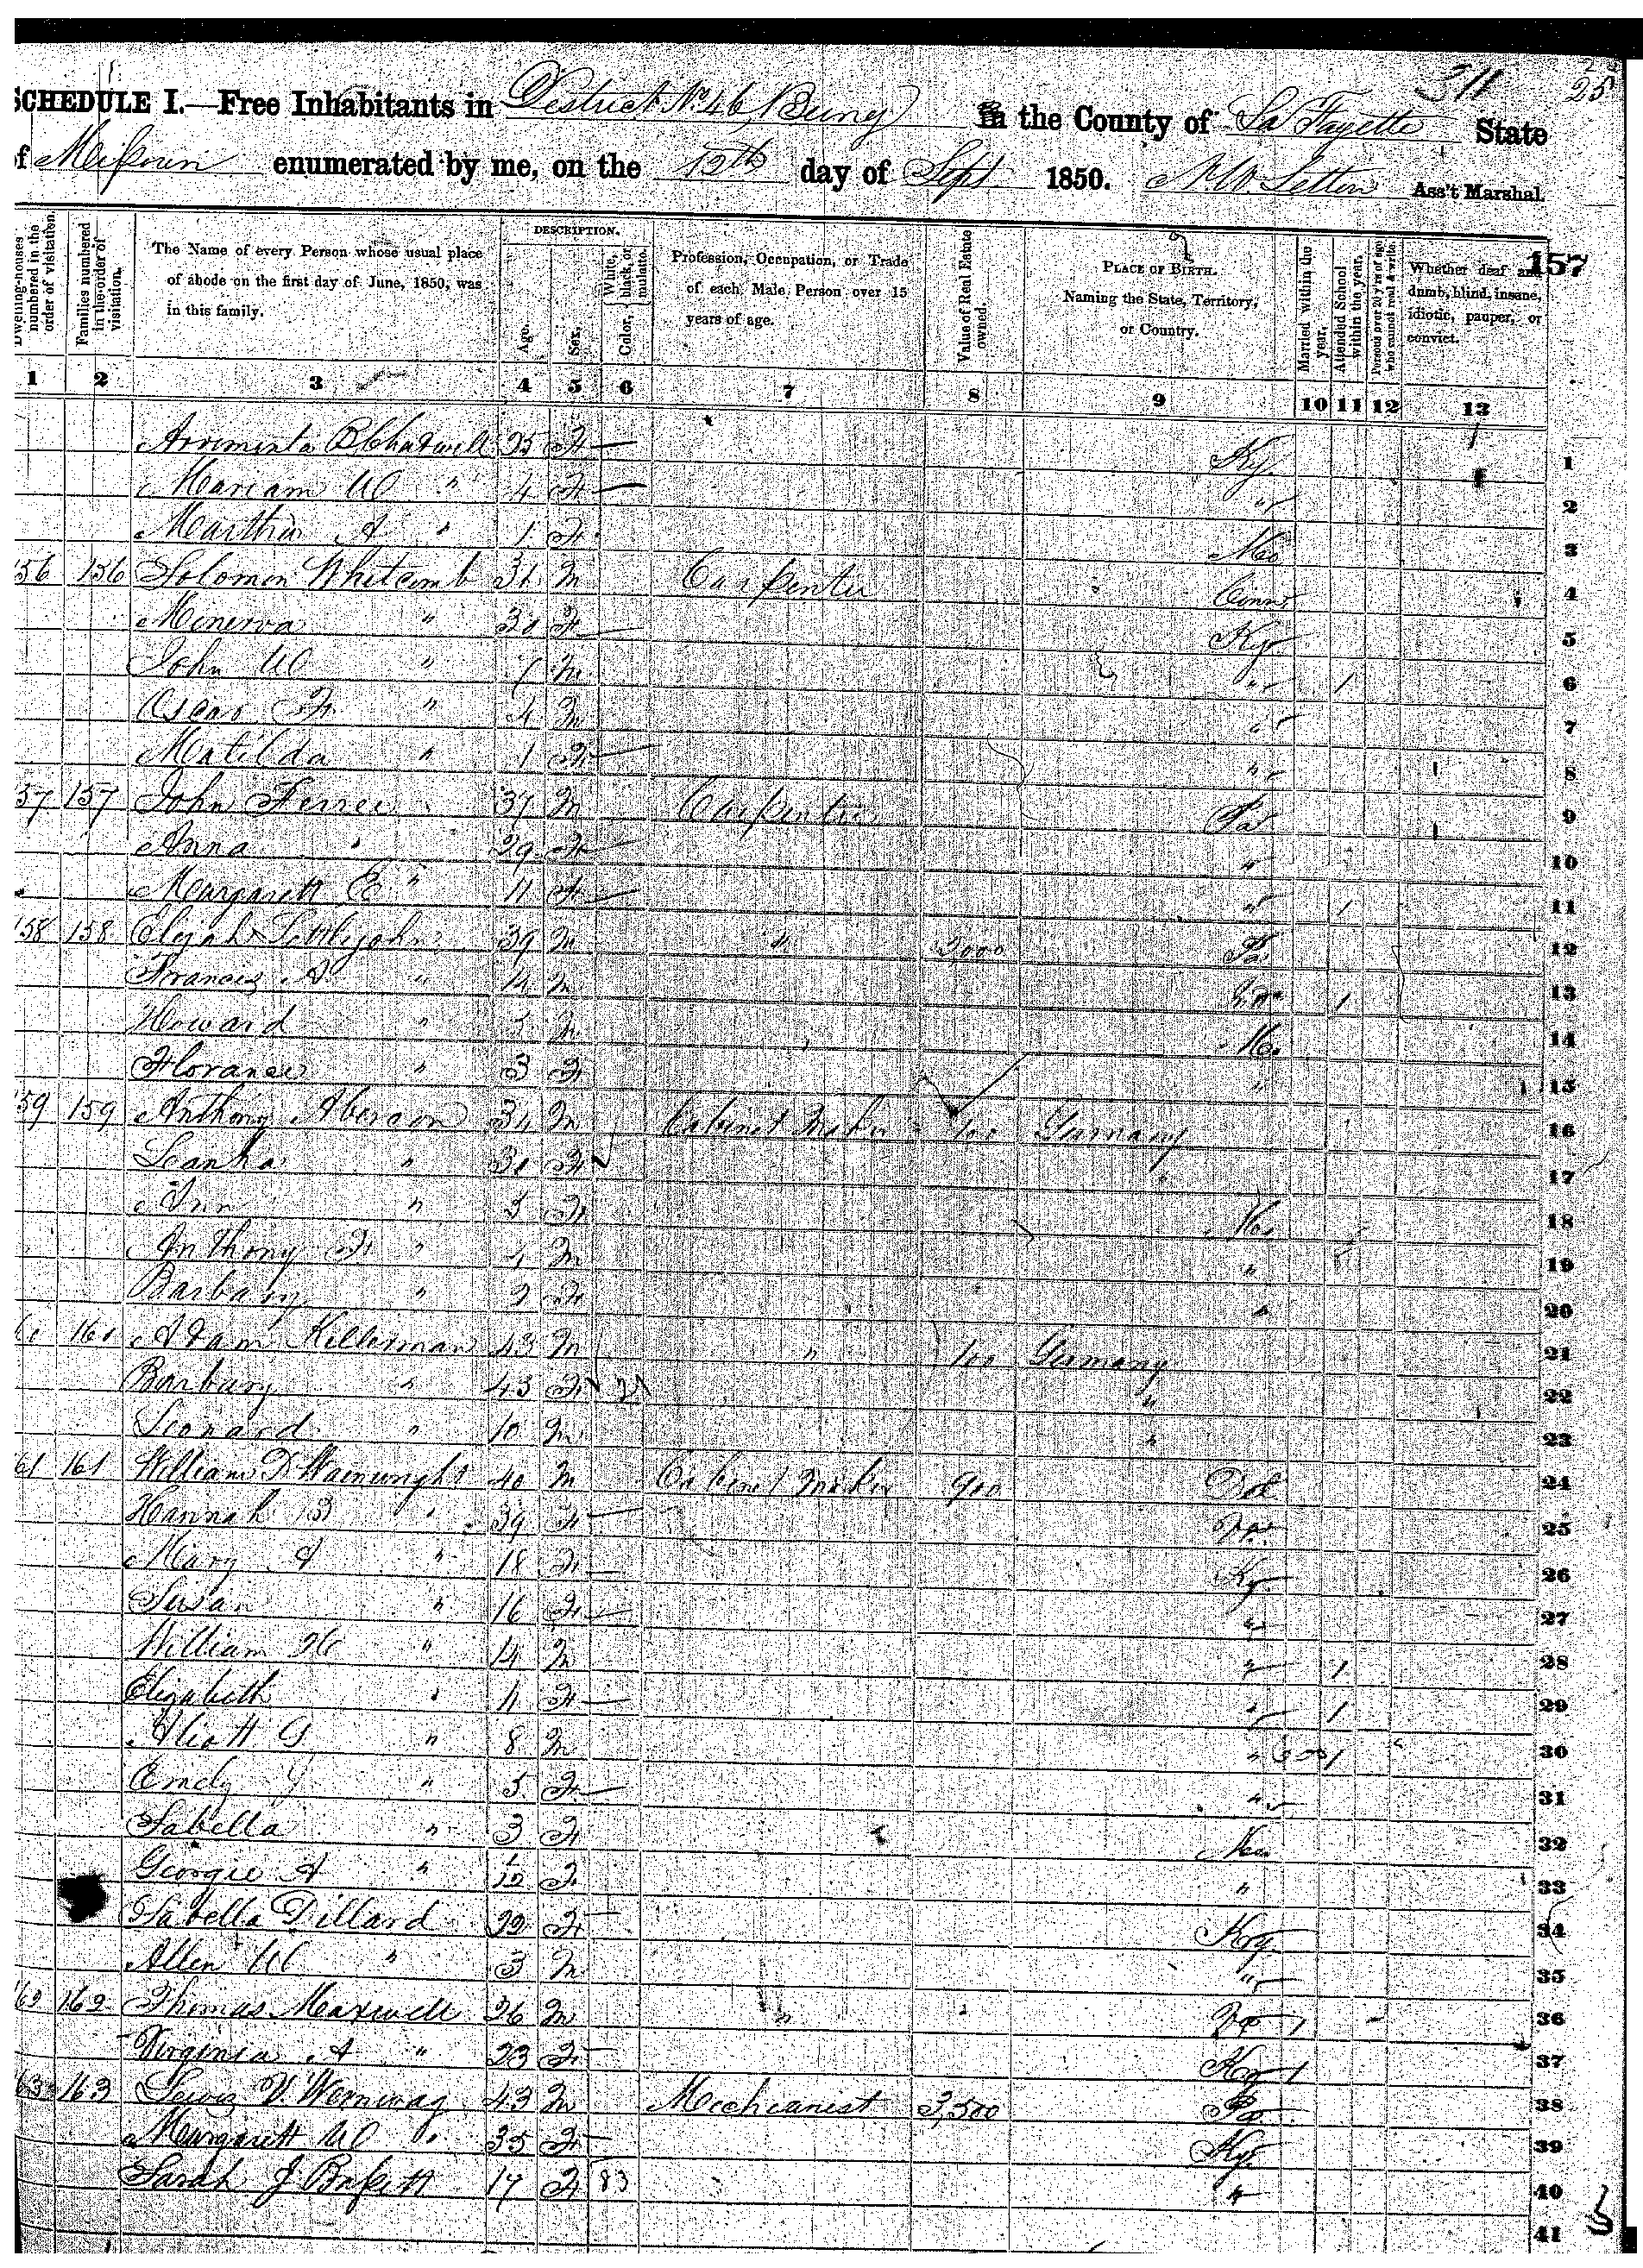 311 25
SCHEDULE I.—Free Inhabitants in District No 46, Being in the County of La Fayette State
of Missouri enumerated by me, on the 12th day of Sept 1850. Ass't Marshal.
DESCRIPTION.
Dwelling-houses numbered in the order of visitation. Families numbered in the order of visitation. The Name of every Person whose usual place of abode on the first day of June, 1850, was in this family. Age. Sex. Color, White, black, or mulatto. Profession, Occupation, or Trade of each Male Person over 15 years of age. Value of Real Estate owned. PLACE OF BIRTH. Naming the State, Territory, or Country. Married within the year. Attended School within the year. Persons over 20 y'rs of age who cannot read & write. Whether deaf and dumb, blind, insane, idiotic, pauper, or convict. 157
1 2 3 4 5 6 7 8 9 10 11 12 13
25 F Ky 1
Mariam W " 4 F " 2
Martha A " 1 F Mo 3
56 156 Solomon Whitcomb M Carpenter Conn 4
Minerva " 30 F Ky 5
John W " 7 M " 1 6
Oscar F " 4 M " 7
Matilda " 1 F " 8
57 157 John Ferree 37 M Carpenter Pa 9
Anna " 29 F " 10
Margarett E " 11 F " 1 11
158 158 Elijah Littlejohn 39 M " 2000 12
Francis A " 14 M 1 13
Howard " 5 M Mo 14
Florance " 3 F " 15
59 159 Anthony 34 M Cabinet Maker 100 Germany 16
" 30 F " 17
Ann " 5 F Mo 18
Anthony F " 4 M " 19
Barbary " 2 F " 20
60 160 Adam Killerman 43 M " 100 Germany 21
Barbary " 43 F " 22
Leonard " 10 M " 23
61 161 William D Wainwright 40 M Cabinet Maker 900 Del 24
Hannah B " 39 F 25
Mary A " 18 F Ky 26
Susan " 16 F " 27
William H " 14 M " 1 28
Elizabeth " 11 F " 1 29
G " 8 M " 1 30
" 5 F " 31
Isabella " 3 F Mo 32
Georgie A " 1/12 F " 33
Isabella Dillard 22 F Ky 34
Allen W " 3 M " 35
62 162 Thomas Maxwell 26 M " 1 36
Virginia A " 23 F Ky 1 37
63 163 Lewis V. Wernwag 43 M Mechcanist 3,500 Pa 38
Margarett W " 35 F Ky 39
Sarah J Baskett 17 F 83 " 40
41